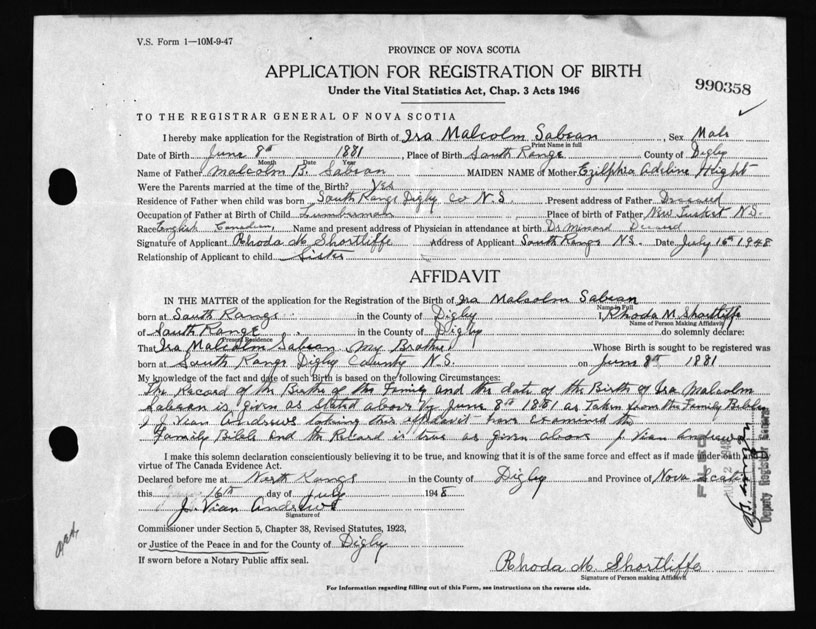 V.S. Form 1—10M-9-47
PROVINCE OF NOVA SCOTIA
APPLICATION FOR REGISTRATION OF BIRTH
Under the Vital Statistics Act, Chap. 3 Acts 1946
990358
TO THE REGISTRAR GENERAL OF NOVA SCOTIA
I hereby make application for the Registration of Birth of Ira Malcolm Sabean, Sex Male
Print Name in full
Date of Birth June 8th 1881, Place of Birth South Range County of Digby
Month Date Year
Name of Father Malcolm B. Sabean MAIDEN NAME of Mother Adeline Height
Were the Parents married at the time of the Birth? Yes
Residence of Father when child was born South Range Digby Co N.S. Present address of Father
Occupation of Father at Birth of Child Lumberman Place of birth of Father New Tusket N.S.
Race English Canadian, Name and present address of Physician in attendance at birth Dr Minard
Signature of Applicant Rhoda M. Shortliffe Address of Applicant South Range N.S. Date July 16th 1948
Relationship of Applicant to child Sister
AFFIDAVIT
IN THE MATTER of the application for the Registration of the Birth of Ira Malcolm Sabean
Name in Full
born at South Range in the County of Digby I, Rhoda M. Shortliffe
Name of Person Making Affidavit
of South Range in the County of Digby do solemnly declare:
Present Residence
That Ira Malcolm Sabean My Brother Whose Birth is sought to be registered was
born at South Range Digby County N.S. on June 8th 1881
My knowledge of the fact and date of such Birth is based on the following Circumstances:
The Record of the Births of the Family and the date of the Birth of Ira Malcolm
Sabean is given as stated above by June 8th 1881 as Taken from the Family Bible
I J. Vian Andrews taking this affidavit have examined the
Family Bible and the Record is true as given above J. Vian Andrews
I make this solemn declaration conscientiously believing it to be true, and knowing that it is of the same force and effect as if made under oath and by
virtue of The Canada Evidence Act.
Declared before me at North Range in the County of Digby and Province of Nova Scotia
this 16th day of July 1948
J. Vian Andrews
Signature of
Commissioner under Section 5, Chapter 38, Revised Statutes, 1923,
or Justice of the Peace in and for the County of Digby
If sworn before a Notary Public affix seal.
Rhoda M. Shortliffe
Signature of Person making Affidavit
For Information regarding filling out of this Form, see instructions on the reverse side.
FILED
Deputy Registrar General